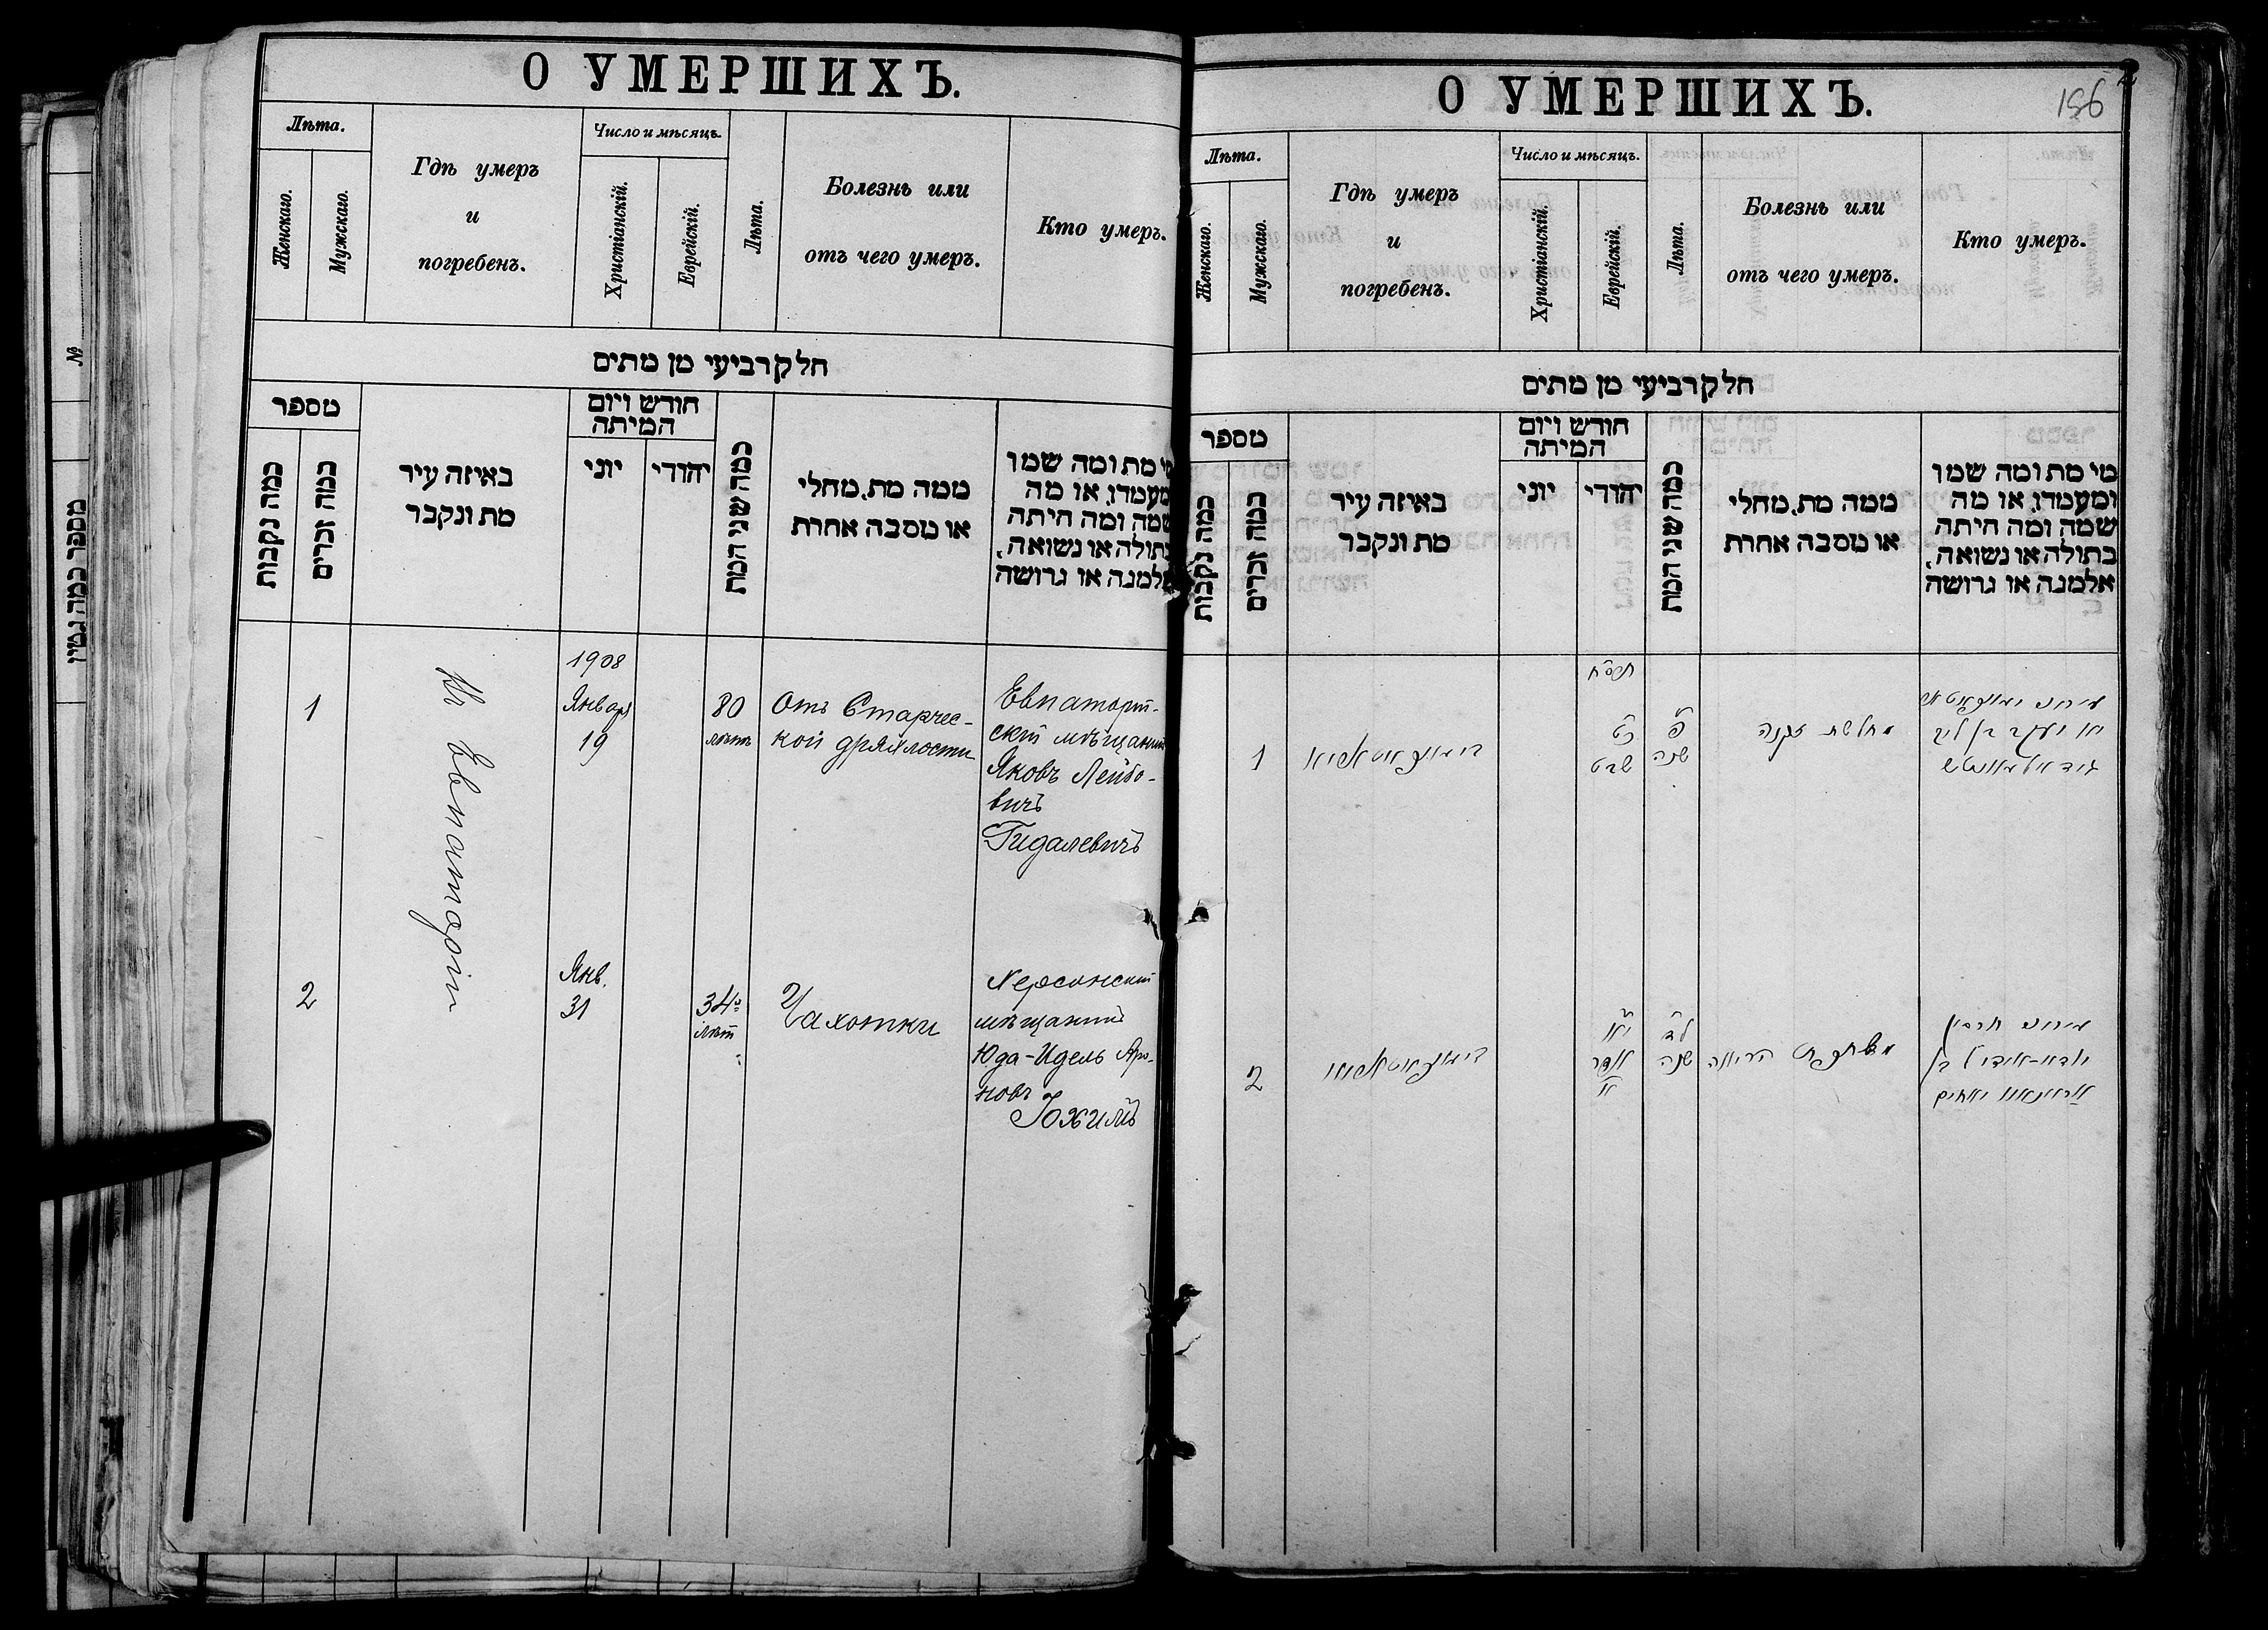 О УМЕРШИХЪ.
Лѣта.
Женскаго.
Мужскаго.
Гдѣ умеръ
и
погребенъ.
Число и мѣсяцъ.
Христіанскій.
Еврейскій.
Лѣта.
Болезнь или
отъ чего умеръ.
Кто умеръ.
חלק רביעי מן מתים
מספר
כמה נקבות
כמה זכרים
באיזה עיר
מת ונקבר
חודש ויום
המיתה
יוני
יהודי
כמה שני המת
ממה מת, מחלי
או מסבה אחרת
מי מת ומה שמו
ומעמדו, או מה
שמה ומה היתה
בתולה או נשואה,
אלמנה או גרושה
1
Въ Евпаторіи
1908
Января
19
80
лѣтъ
Отъ Старчес-
кой дряхлости
Евпаторій-
скій мѣщанинъ
Яковъ Лейбо-
вичъ
Гидалевичъ
2
Янв.
31
34
лѣт
Чахотки
Херсонскій
мѣщанинъ
Юда-Идель Аро-
новъ
Іохимъ
О УМЕРШИХЪ.
156
Лѣта.
Женскаго.
Мужскаго.
Гдѣ умеръ
и
погребенъ.
Число и мѣсяцъ.
Христіанскій.
Еврейскій.
Лѣта.
Болезнь или
отъ чего умеръ.
Кто умеръ.
חלק רביעי מן מתים
מספר
כמה נקבות
כמה זכרים
באיזה עיר
מת ונקבר
חודש ויום
המיתה
יוני
יהודי
כמה שני המת
ממה מת, מחלי
או מסבה אחרת
מי מת ומה שמו
ומעמדו, או מה
שמה ומה היתה
בתולה או נשואה,
אלמנה או גרושה
1
תרס״ח
שבט
פ׳
שנה
מחלשת זקנה
יעקב בן ליב
2
י״א
אדר
א׳
ל״ד
שנה
הריאה
עירוני חרסאן
יודא-אידיל בן